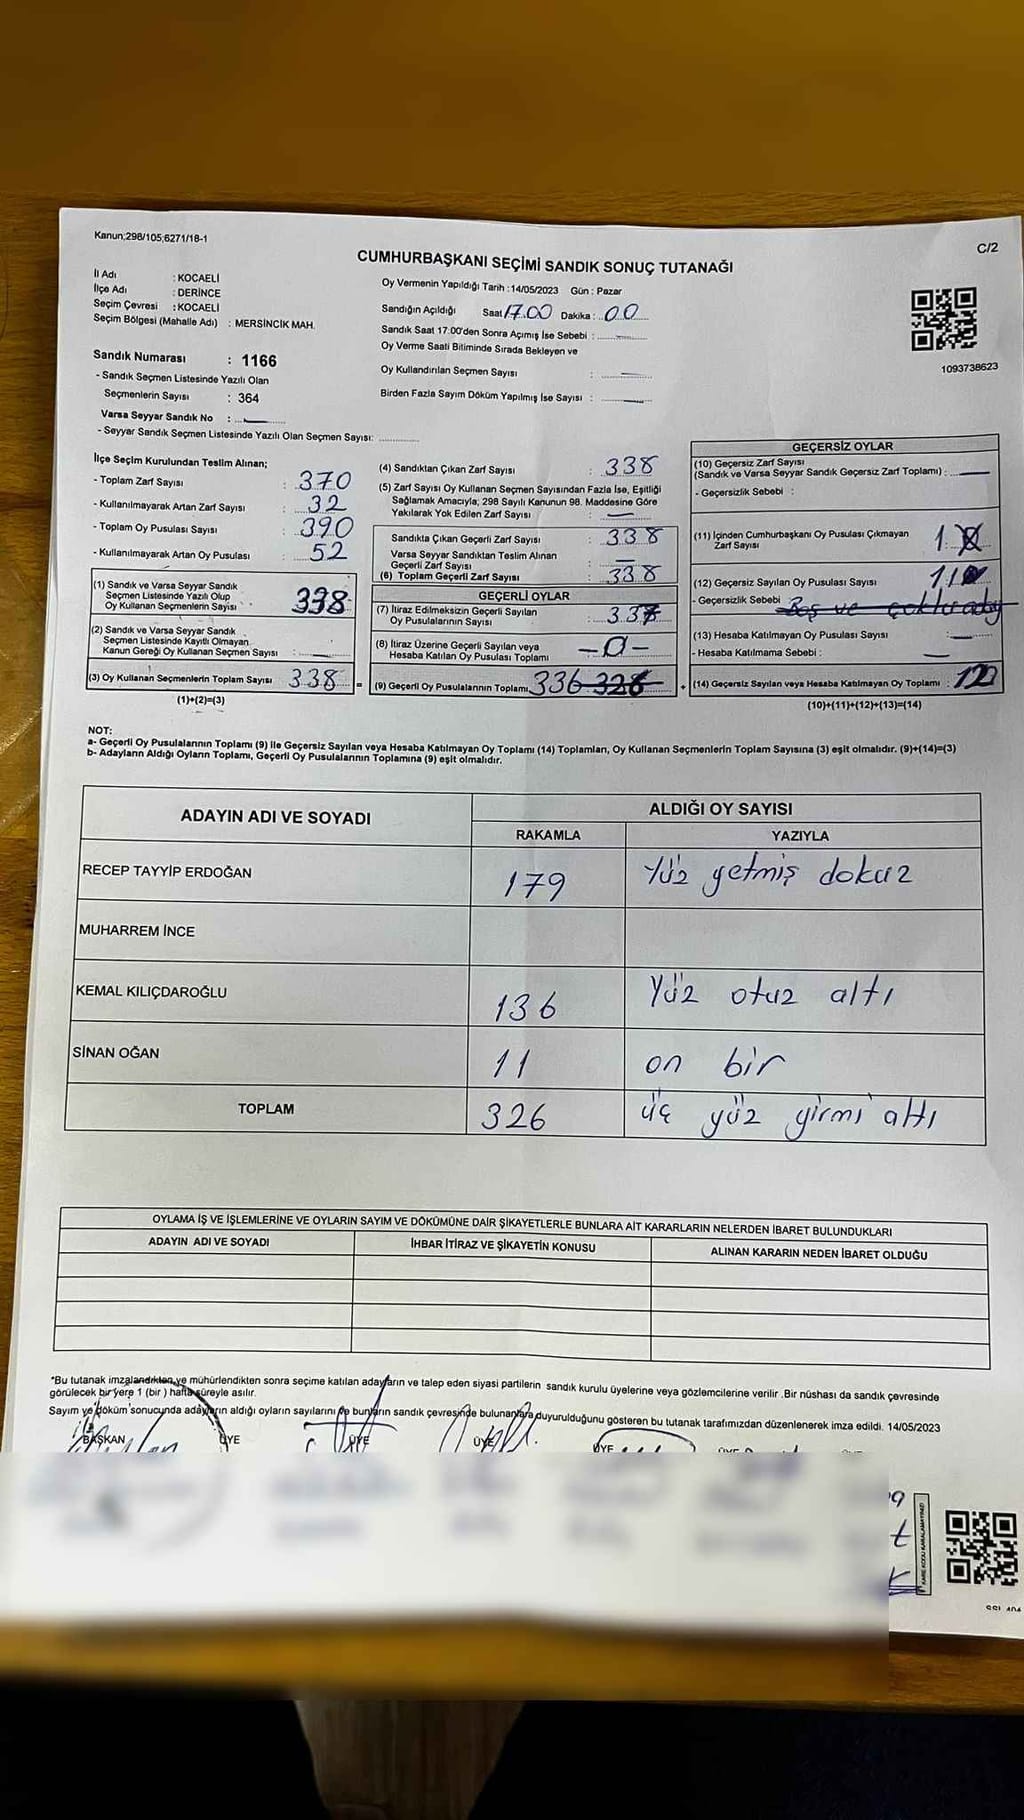 Kanun;298/105;6271/18-1
C/2
CUMHURBAŞKANI SEÇİMİ SANDIK SONUÇ TUTANAĞI
İl Adı : KOCAELİ
İlçe Adı : DERİNCE
Seçim Çevresi : KOCAELİ
Seçim Bölgesi (Mahalle Adı) : MERSİNCİK MAH.
Sandık Numarası : 1166
- Sandık Seçmen Listesinde Yazılı Olan
Seçmenlerin Sayısı : 364
Varsa Seyyar Sandık No :
- Seyyar Sandık Seçmen Listesinde Yazılı Olan Seçmen Sayısı:
Oy Vermenin Yapıldığı Tarih : 14/05/2023 Gün : Pazar
Sandığın Açıldığı Saat 17.00 Dakika : 00
Sandık Saat 17:00'den Sonra Açımış İse Sebebi :
Oy Verme Saati Bitiminde Sırada Bekleyen ve
Oy Kullandırılan Seçmen Sayısı :
Birden Fazla Sayım Döküm Yapılmış İse Sayısı :
1093738623
İlçe Seçim Kurulundan Teslim Alınan;
- Toplam Zarf Sayısı : 370
- Kullanılmayarak Artan Zarf Sayısı : 32
- Toplam Oy Pusulası Sayısı : 390
- Kullanılmayarak Artan Oy Pusulası : 52
(1) Sandık ve Varsa Seyyar Sandık
Seçmen Listesinde Yazılı Olup
Oy Kullanan Seçmenlerin Sayısı : 338
(2) Sandık ve Varsa Seyyar Sandık
Seçmen Listesinde Kayıtlı Olmayan
Kanun Gereği Oy Kullanan Seçmen Sayısı :
(3) Oy Kullanan Seçmenlerin Toplam Sayısı 338
(1)+(2)=(3)
(4) Sandıktan Çıkan Zarf Sayısı : 338
(5) Zarf Sayısı Oy Kullanan Seçmen Sayısından Fazla İse, Eşitliği
Sağlamak Amacıyla; 298 Sayılı Kanunun 98. Maddesine Göre
Yakılarak Yok Edilen Zarf Sayısı :
Sandıkta Çıkan Geçerli Zarf Sayısı : 338
Varsa Seyyar Sandıktan Teslim Alınan
Geçerli Zarf Sayısı :
(6) Toplam Geçerli Zarf Sayısı : 338
GEÇERLİ OYLAR
(7) İtiraz Edilmeksizin Geçerli Sayılan
Oy Pusulalarının Sayısı :
(8) İtiraz Üzerine Geçerli Sayılan veya
Hesaba Katılan Oy Pusulası Toplamı - 0 -
= (9) Geçerli Oy Pusulalarının Toplamı 336 326
GEÇERSİZ OYLAR
(10) Geçersiz Zarf Sayısı
(Sandık ve Varsa Seyyar Sandık Geçersiz Zarf Toplamı) :
- Geçersizlik Sebebi :
(11) İçinden Cumhurbaşkanı Oy Pusulası Çıkmayan
Zarf Sayısı :
(12) Geçersiz Sayılan Oy Pusulası Sayısı :
- Geçersizlik Sebebi Boş ve
(13) Hesaba Katılmayan Oy Pusulası Sayısı :
- Hesaba Katılmama Sebebi :
+ (14) Geçersiz Sayılan veya Hesaba Katılmayan Oy Toplamı :
(10)+(11)+(12)+(13)=(14)
NOT:
a- Geçerli Oy Pusulalarının Toplamı (9) ile Geçersiz Sayılan veya Hesaba Katılmayan Oy Toplamı (14) Toplamları, Oy Kullanan Seçmenlerin Toplam Sayısına (3) eşit olmalıdır. (9)+(14)=(3)
b- Adayların Aldığı Oyların Toplamı, Geçerli Oy Pusulalarının Toplamına (9) eşit olmalıdır.
ADAYIN ADI VE SOYADI
ALDIĞI OY SAYISI
RAKAMLA YAZIYLA
RECEP TAYYİP ERDOĞAN 179 Yüz yetmiş dokuz
MUHARREM İNCE
KEMAL KILIÇDAROĞLU 136 Yüz otuz altı
SİNAN OĞAN 11 on bir
TOPLAM 326 üç yüz yirmi altı
OYLAMA İŞ VE İŞLEMLERİNE VE OYLARIN SAYIM VE DÖKÜMÜNE DAİR ŞİKAYETLERLE BUNLARA AİT KARARLARIN NELERDEN İBARET BULUNDUKLARI
ADAYIN ADI VE SOYADI İHBAR İTİRAZ VE ŞİKAYETİN KONUSU ALINAN KARARIN NEDEN İBARET OLDUĞU
*Bu tutanak imzalandıktan ve mühürlendikten sonra seçime katılan adayların ve talep eden siyasi partilerin sandık kurulu üyelerine veya gözlemcilerine verilir .Bir nüshası da sandık çevresinde
görülecek bir yere 1 (bir ) hafta süreyle asılır.
Sayım ve döküm sonucunda adayların aldığı oyların sayılarını ve bunların sandık çevresinde bulunanlara duyurulduğunu gösteren bu tutanak tarafımızdan düzenlenerek imza edildi. 14/05/2023
BAŞKAN ÜYE ÜYE ÜYE ÜYE